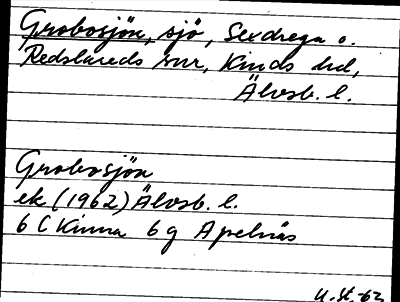 Grobosjön, sjö, Sexdrega o.
Redslareds snr, Kinds hd,
Älvsb. l.
Grobosjön
ek (1962) Älvsb. l.
6 C Kinna 6 g Apelnäs
U. St. 62